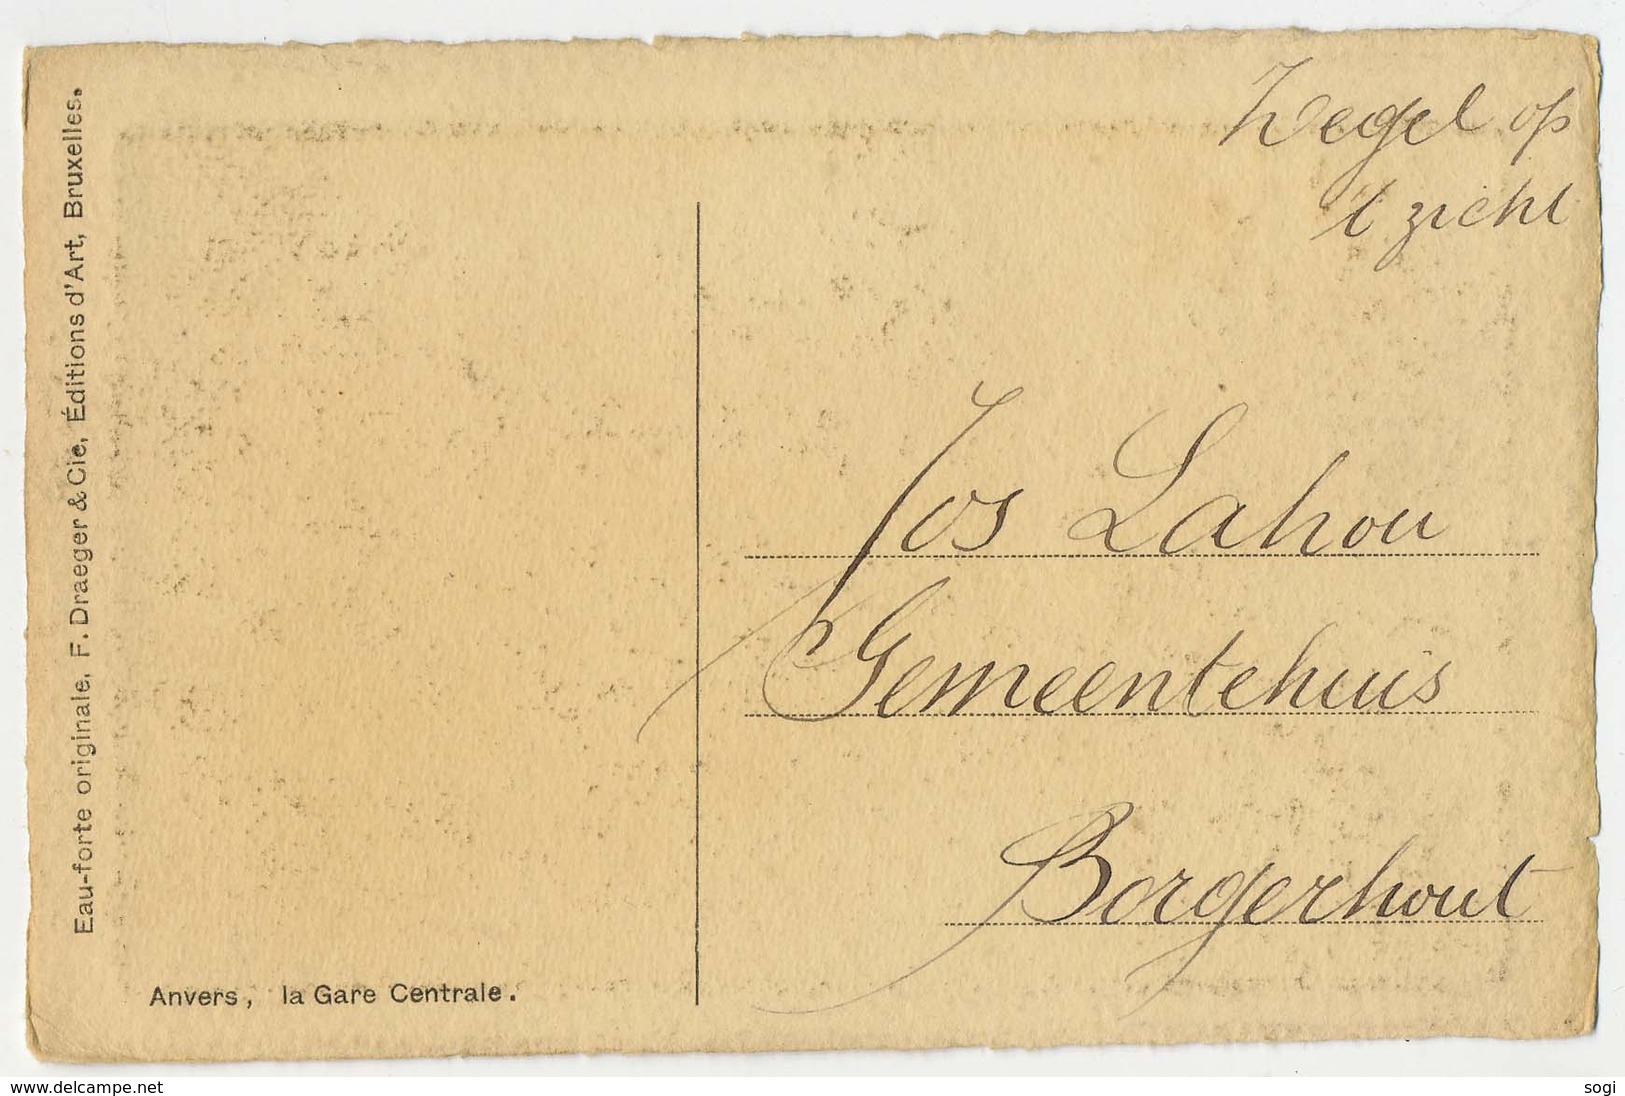 Zegel op
't zicht
Eau-forte originale, F. Draeger & Cie, Éditions d'Art, Bruxelles.
Jos Lahou
Gemeentehuis
Borgerhout
Anvers, la Gare Centrale.
www.delcampe.net
sogi